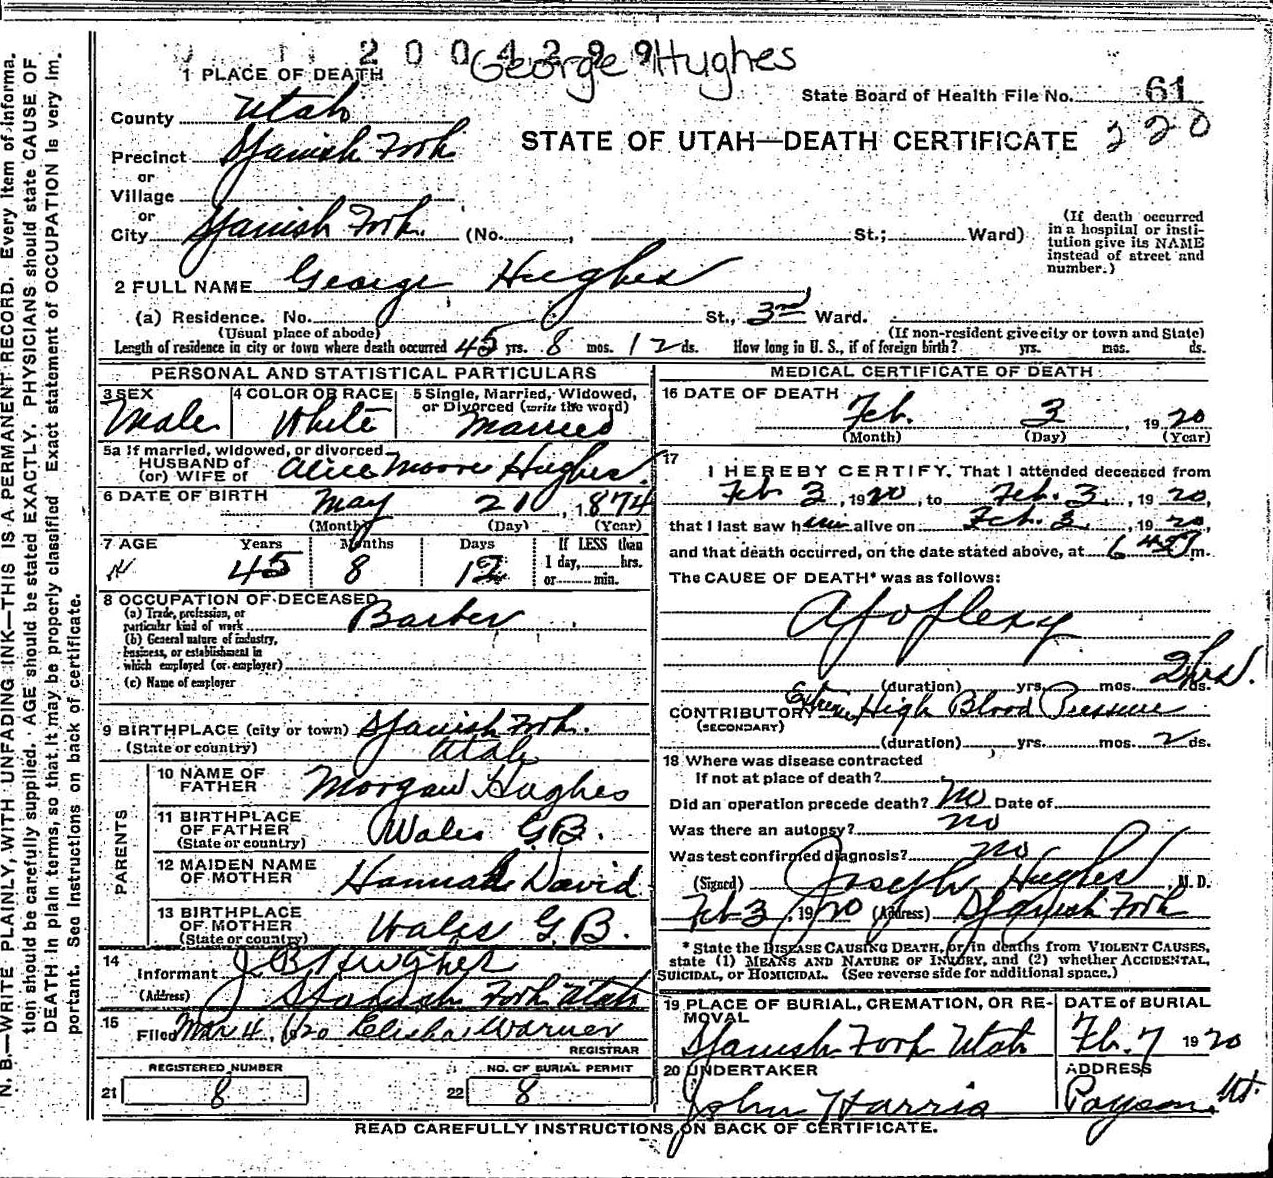 2004299 George Hughes
1 PLACE OF DEATH
State Board of Health File No. 61
County Utah
STATE OF UTAH—DEATH CERTIFICATE 220
Precinct Spanish Fork
or
Village
or
City Spanish Fork. (No. , St.; Ward)
(If death occurred
in a hospital or insti-
tution give its NAME
instead of street and
number.)
2 FULL NAME George Hughes
(a) Residence. No. St., 3rd Ward.
(Usual place of abode) (If non-resident give city or town and State)
Length of residence in city or town where death occurred 45 yrs. 8 mos. 12 ds. How long in U. S., if of foreign birth? yrs. mos. ds.
PERSONAL AND STATISTICAL PARTICULARS
3 SEX
Male
4 COLOR OR RACE
White
5 Single, Married, Widowed,
or Divorced (write the word)
Married
5a If married, widowed, or divorced
HUSBAND of
(or) WIFE of Alice Moore Hughes
6 DATE OF BIRTH May 21, 1874
(Month) (Day) (Year)
7 AGE Years Months Days
45 8 12
If LESS than
1 day, hrs.
or min.
8 OCCUPATION OF DECEASED
(a) Trade, profession, or
particular kind of work Barber
(b) General nature of industry,
business, or establishment in
which employed (or employer)
(c) Name of employer
9 BIRTHPLACE (city or town) Spanish Fork.
(State or country) Utah
PARENTS
10 NAME OF
FATHER Morgan Hughes
11 BIRTHPLACE
OF FATHER Wales G.B.
(State or country)
12 MAIDEN NAME
OF MOTHER Hannah David
13 BIRTHPLACE
OF MOTHER Wales G.B.
(State or country)
14
Informant J B Hughes
(Address) Spanish Fork Utah
15
Filed Mar 4, 1920 Elisha Warner
REGISTRAR
REGISTERED NUMBER
21 8
NO. OF BURIAL PERMIT
22 8
MEDICAL CERTIFICATE OF DEATH
16 DATE OF DEATH
Feb. 3, 1920
(Month) (Day) (Year)
17
I HEREBY CERTIFY, That I attended deceased from
Feb 3, 1920, to Feb. 3, 1920,
that I last saw him alive on Feb. 3, 1920,
and that death occurred, on the date stated above, at m.
The CAUSE OF DEATH* was as follows:
Apoplexy
(duration) yrs. mos. 2hrs. ds.
CONTRIBUTORY Extreme High Blood Pressure
(SECONDARY)
(duration) yrs. mos. 2 ds.
18 Where was disease contracted
if not at place of death?
Did an operation precede death? No Date of
Was there an autopsy? no
Was test confirmed diagnosis? no
(Signed) Joseph Hughes M. D.
Feb 3, 1920 (Address) Spanish Fork
* State the DISEASE CAUSING DEATH, or in deaths from VIOLENT CAUSES,
state (1) MEANS AND NATURE OF INJURY, and (2) whether ACCIDENTAL,
SUICIDAL, or HOMICIDAL. (See reverse side for additional space.)
19 PLACE OF BURIAL, CREMATION, OR RE-
MOVAL
Spanish Fork Utah
DATE of BURIAL
Feb. 7 1920
20 UNDERTAKER
John Harris
ADDRESS
Payson, Ut.
READ CAREFULLY INSTRUCTIONS ON BACK OF CERTIFICATE.
N. B.—WRITE PLAINLY, WITH UNFADING INK—THIS IS A PERMANENT RECORD. Every item of informa-
tion should be carefully supplied. AGE should be stated EXACTLY. PHYSICIANS should state CAUSE OF
DEATH in plain terms, so that it may be properly classified. Exact statement of OCCUPATION is very im-
portant. See instructions on back of certificate.